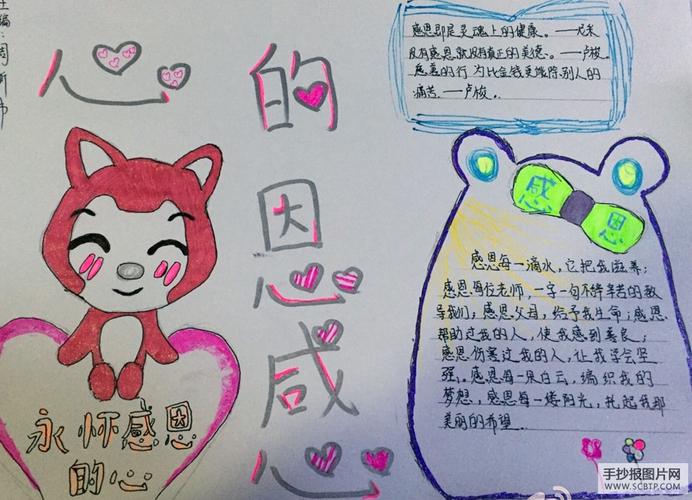 主编：周新
心的感恩
感恩即是灵魂上的健康。——尼采
没有感恩就没有真正的美德。——卢梭
慈善的行为比金钱更能解除别人的
痛苦。——卢梭
感恩
感恩每一滴水，它把我滋养；
感恩每位老师，一字一句不辞辛苦的教
导我们，感恩父母，给予我生命；感恩
帮助过我的人，使我感到善良；
感恩伤害过我的人，让我学会坚
强。感恩每一朵白云，编织我的
梦想，感恩每一缕阳光，托起我那
美丽的希望
永怀感恩
的心
手抄报图片网
WWW.SCBTP.COM